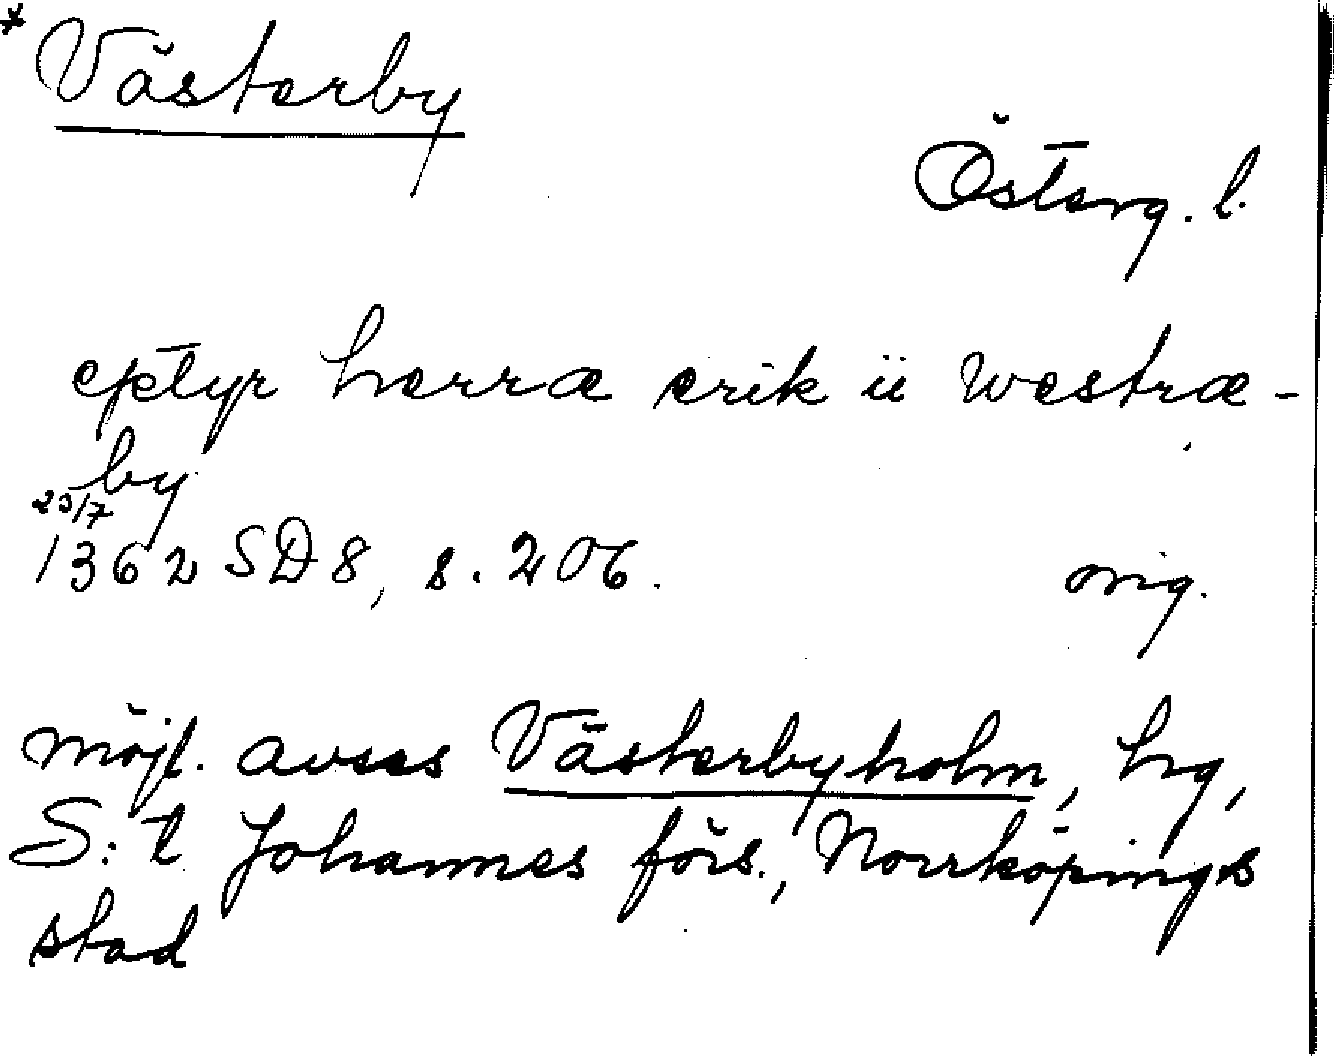 * Västerby
Österg. l.
eptyr herræ erik ii westræ-
by
25/7
1362 SD 8, s. 206. orig.
möjl. avses Västerbyholm, hg,
S:t Johannes förs., Norrköpings
stad